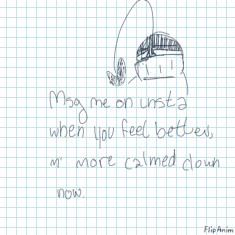 Msg me on insta
when you feel better,
n' more calmed down
now.
FlipAnim